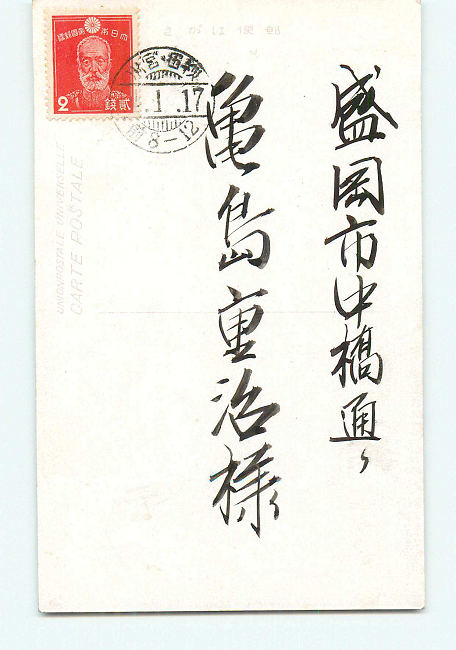 きがは便郵
盛岡市中橋通り
亀島重治様
大日本帝國郵便
2
貳銭
.1.17
8-12
UNION POSTALE UNIVERSELLE
CARTE POSTALE